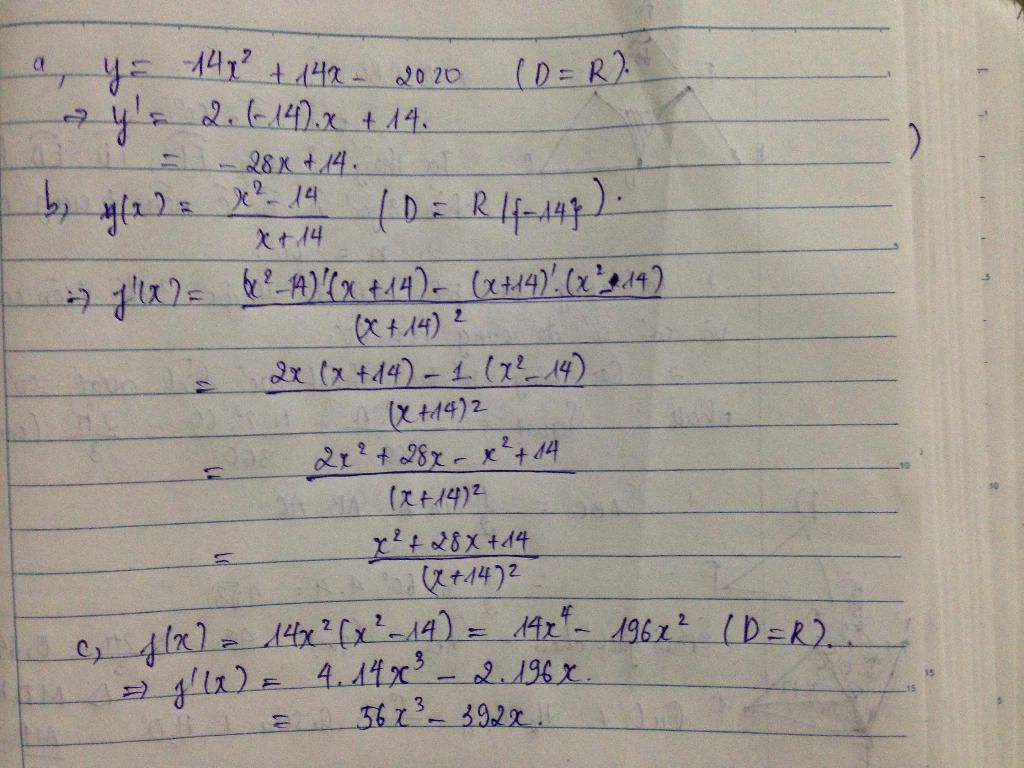 a, y = -14x² + 14x - 2020 (D = R).
⇒ y' = 2.(-14).x + 14.
= - 28x + 14.
b, y(x) = \frac{x² - 14}{x + 14} (D = R \ {-14}).
⇒ y'(x) = \frac{(x² - 14)'.(x + 14) - (x + 14)'.(x² - 14)}{(x + 14)²}
= \frac{2x (x + 14) - 1. (x² - 14)}{(x + 14)²}
= \frac{2x² + 28x - x² + 14}{(x + 14)²}
= \frac{x² + 28x + 14}{(x + 14)²}
c, f(x) = 14x² (x² - 14) = 14x⁴ - 196x² (D = R)..
⇒ f'(x) = 4.14x³ - 2.196x.
= 56x³ - 392x.